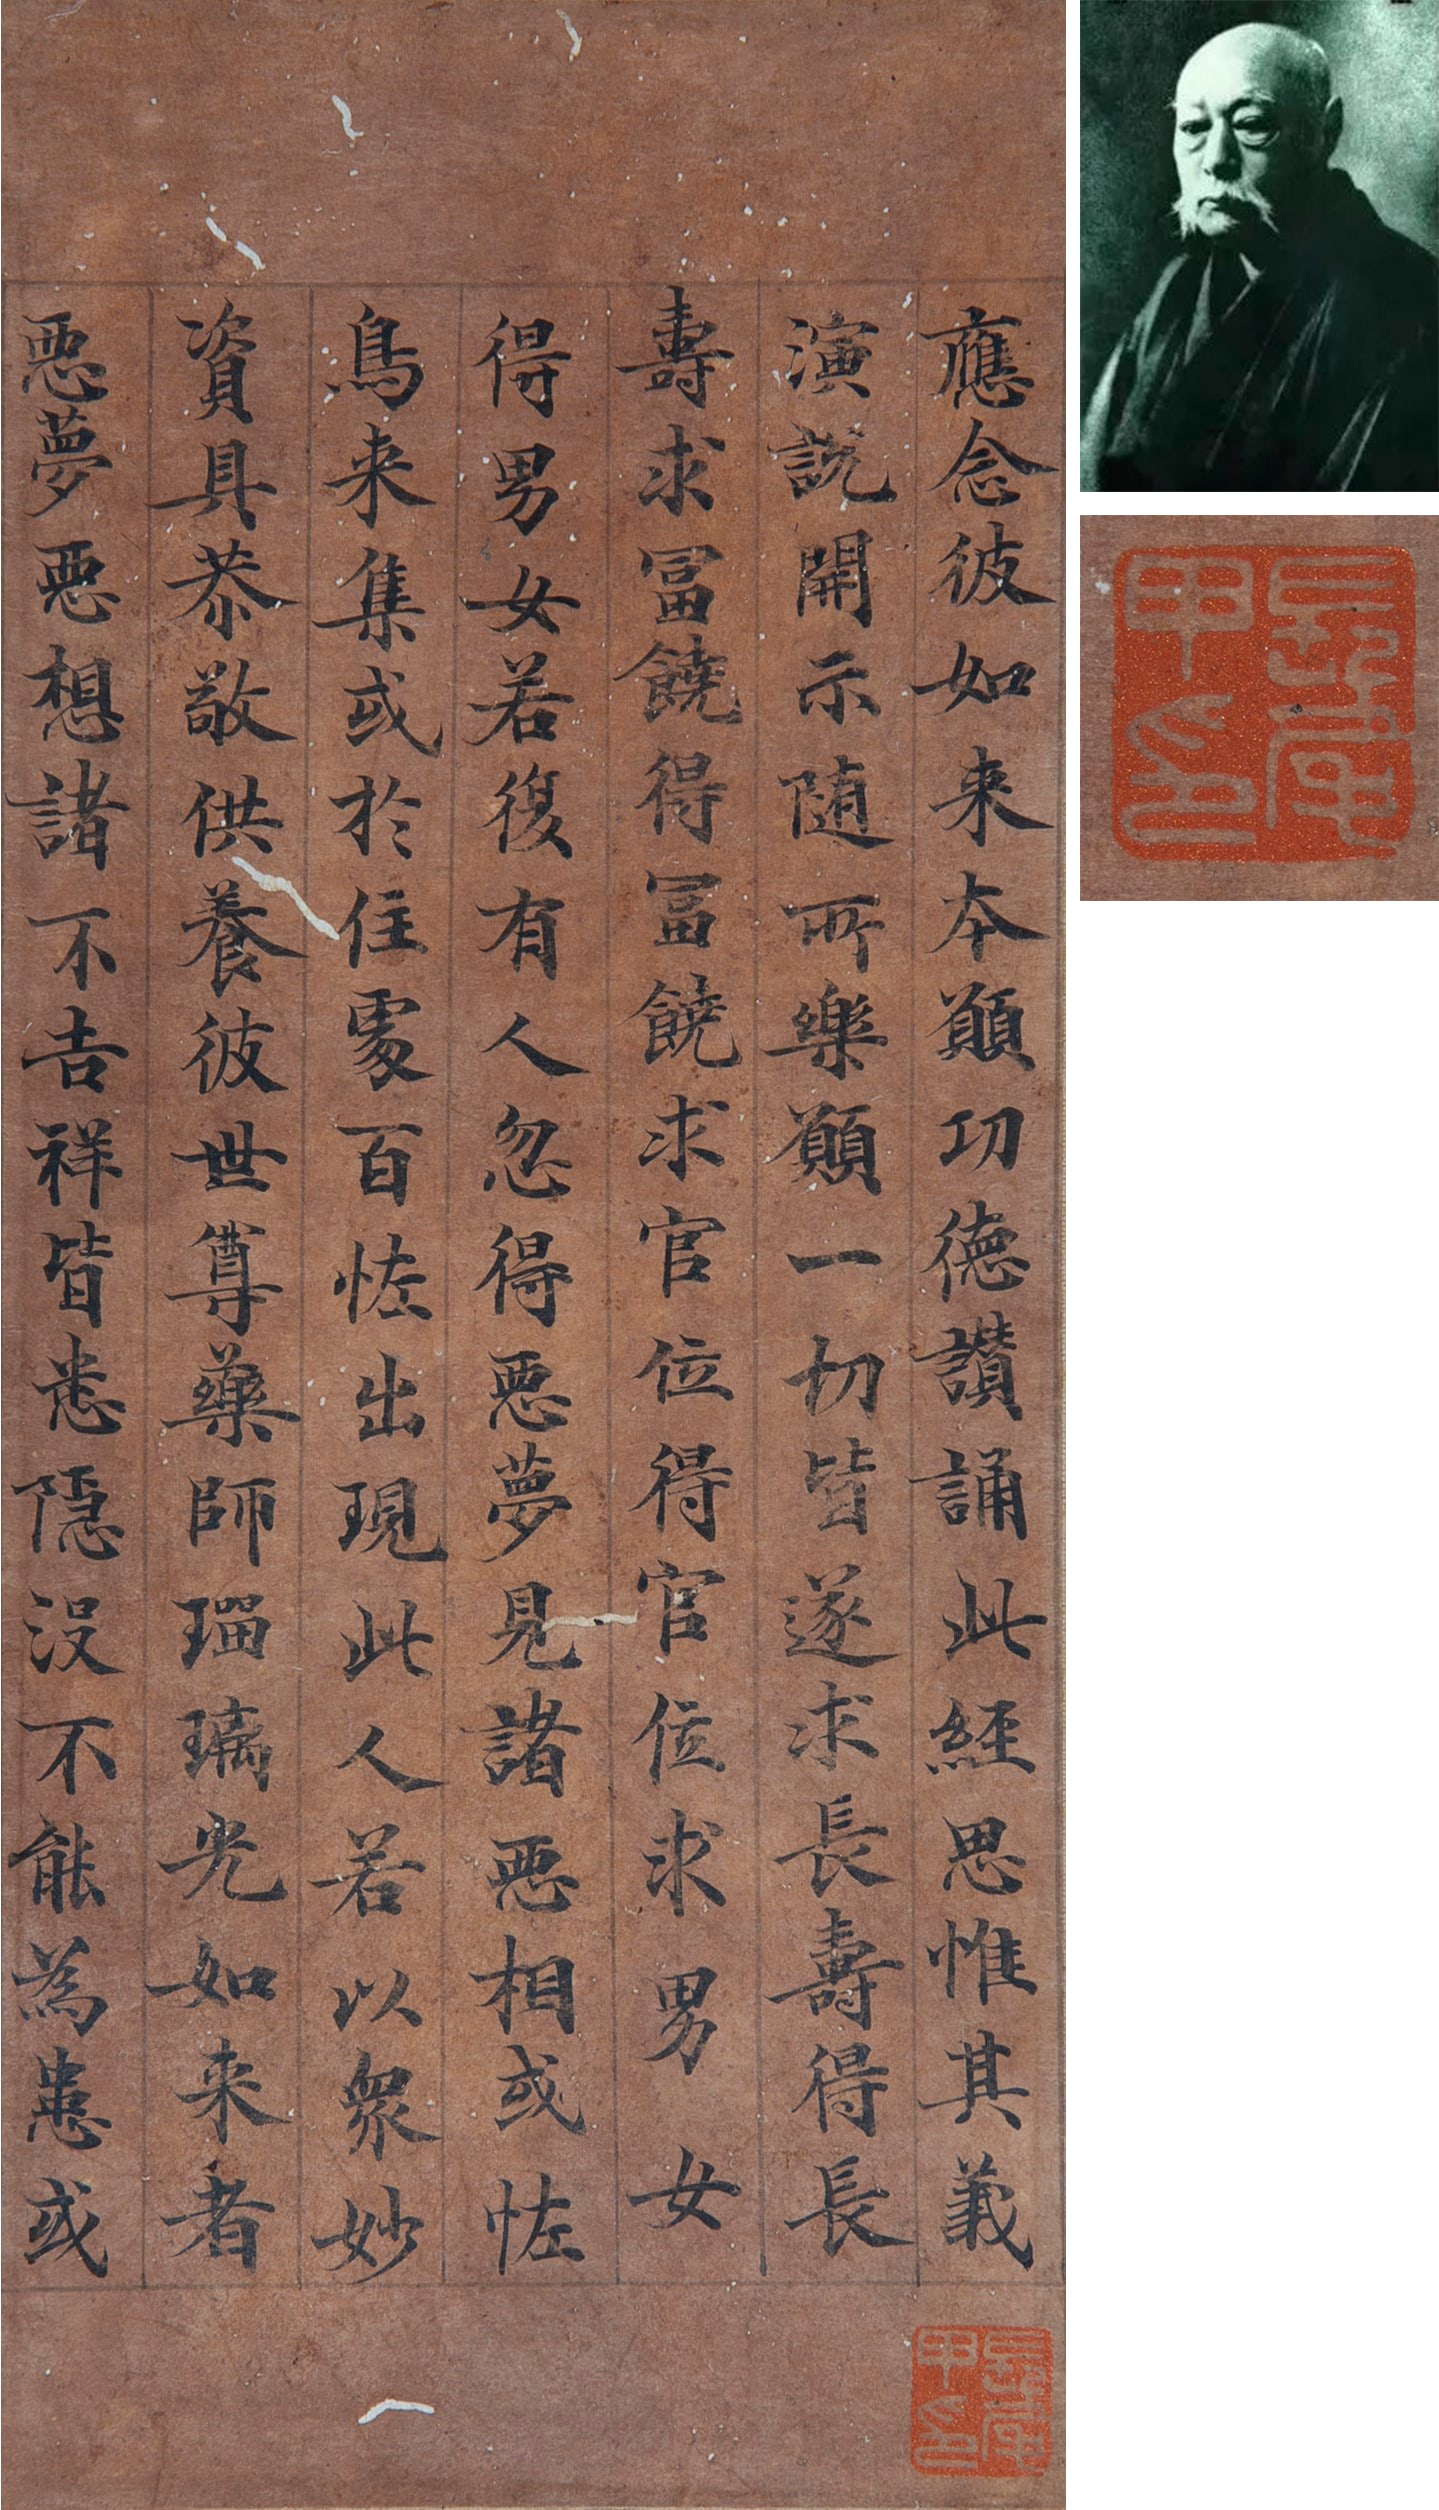 應念彼如来本願功德讚誦此經思惟其義
演說開示随所樂願一切皆遂求長壽得長
壽求冨饒得冨饒求官位得官位求男女
得男女若復有人忽得惡夢見諸惡相或恠
鳥来集或於住處百恠出現此人若以衆妙
資具恭敬供養彼世尊藥師瑠璃光如来者
惡夢惡想諸不吉祥皆悉隐没不能為患或
長尾
甲印
長尾
甲印